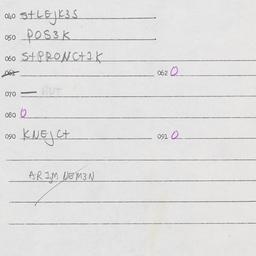 040 StLEjK3S
050 POS3K
060 StPRONCt2K
061 062 0
070 —
080 0
090 KNEjCt 091 0
AR2M NEM3N